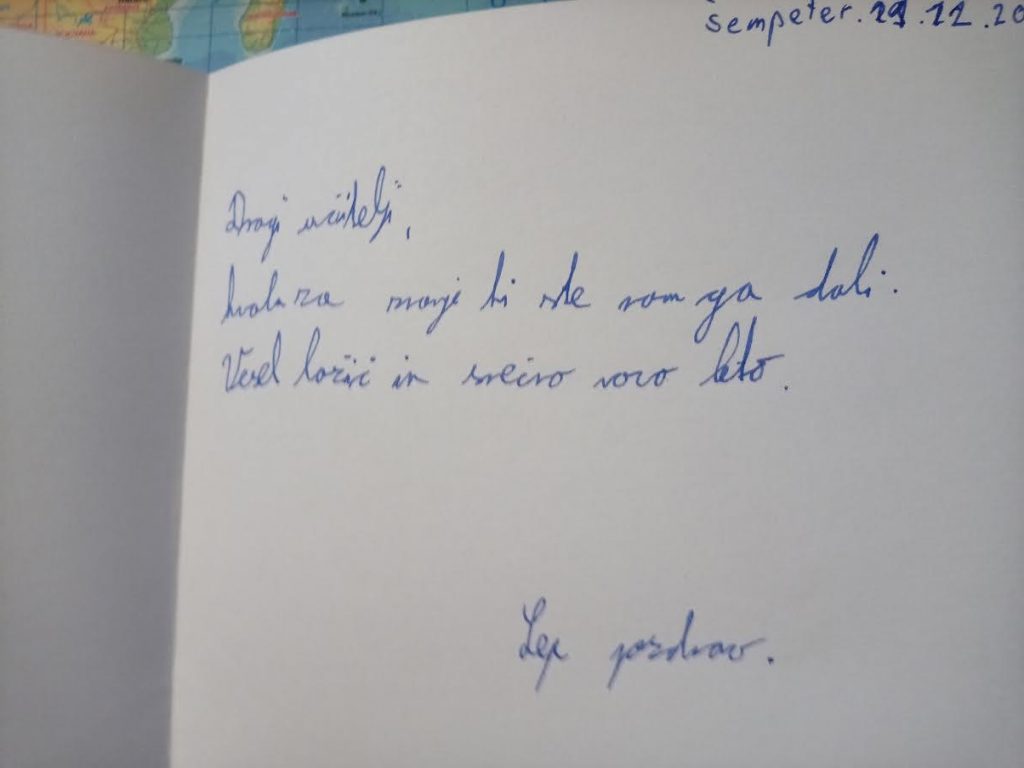 Šempeter. 21.12.20
Dragi učitelji,
hvala za znanje ki ste nam ga dali.
Vesel božič in srečno novo leto.
Lep pozdrav.